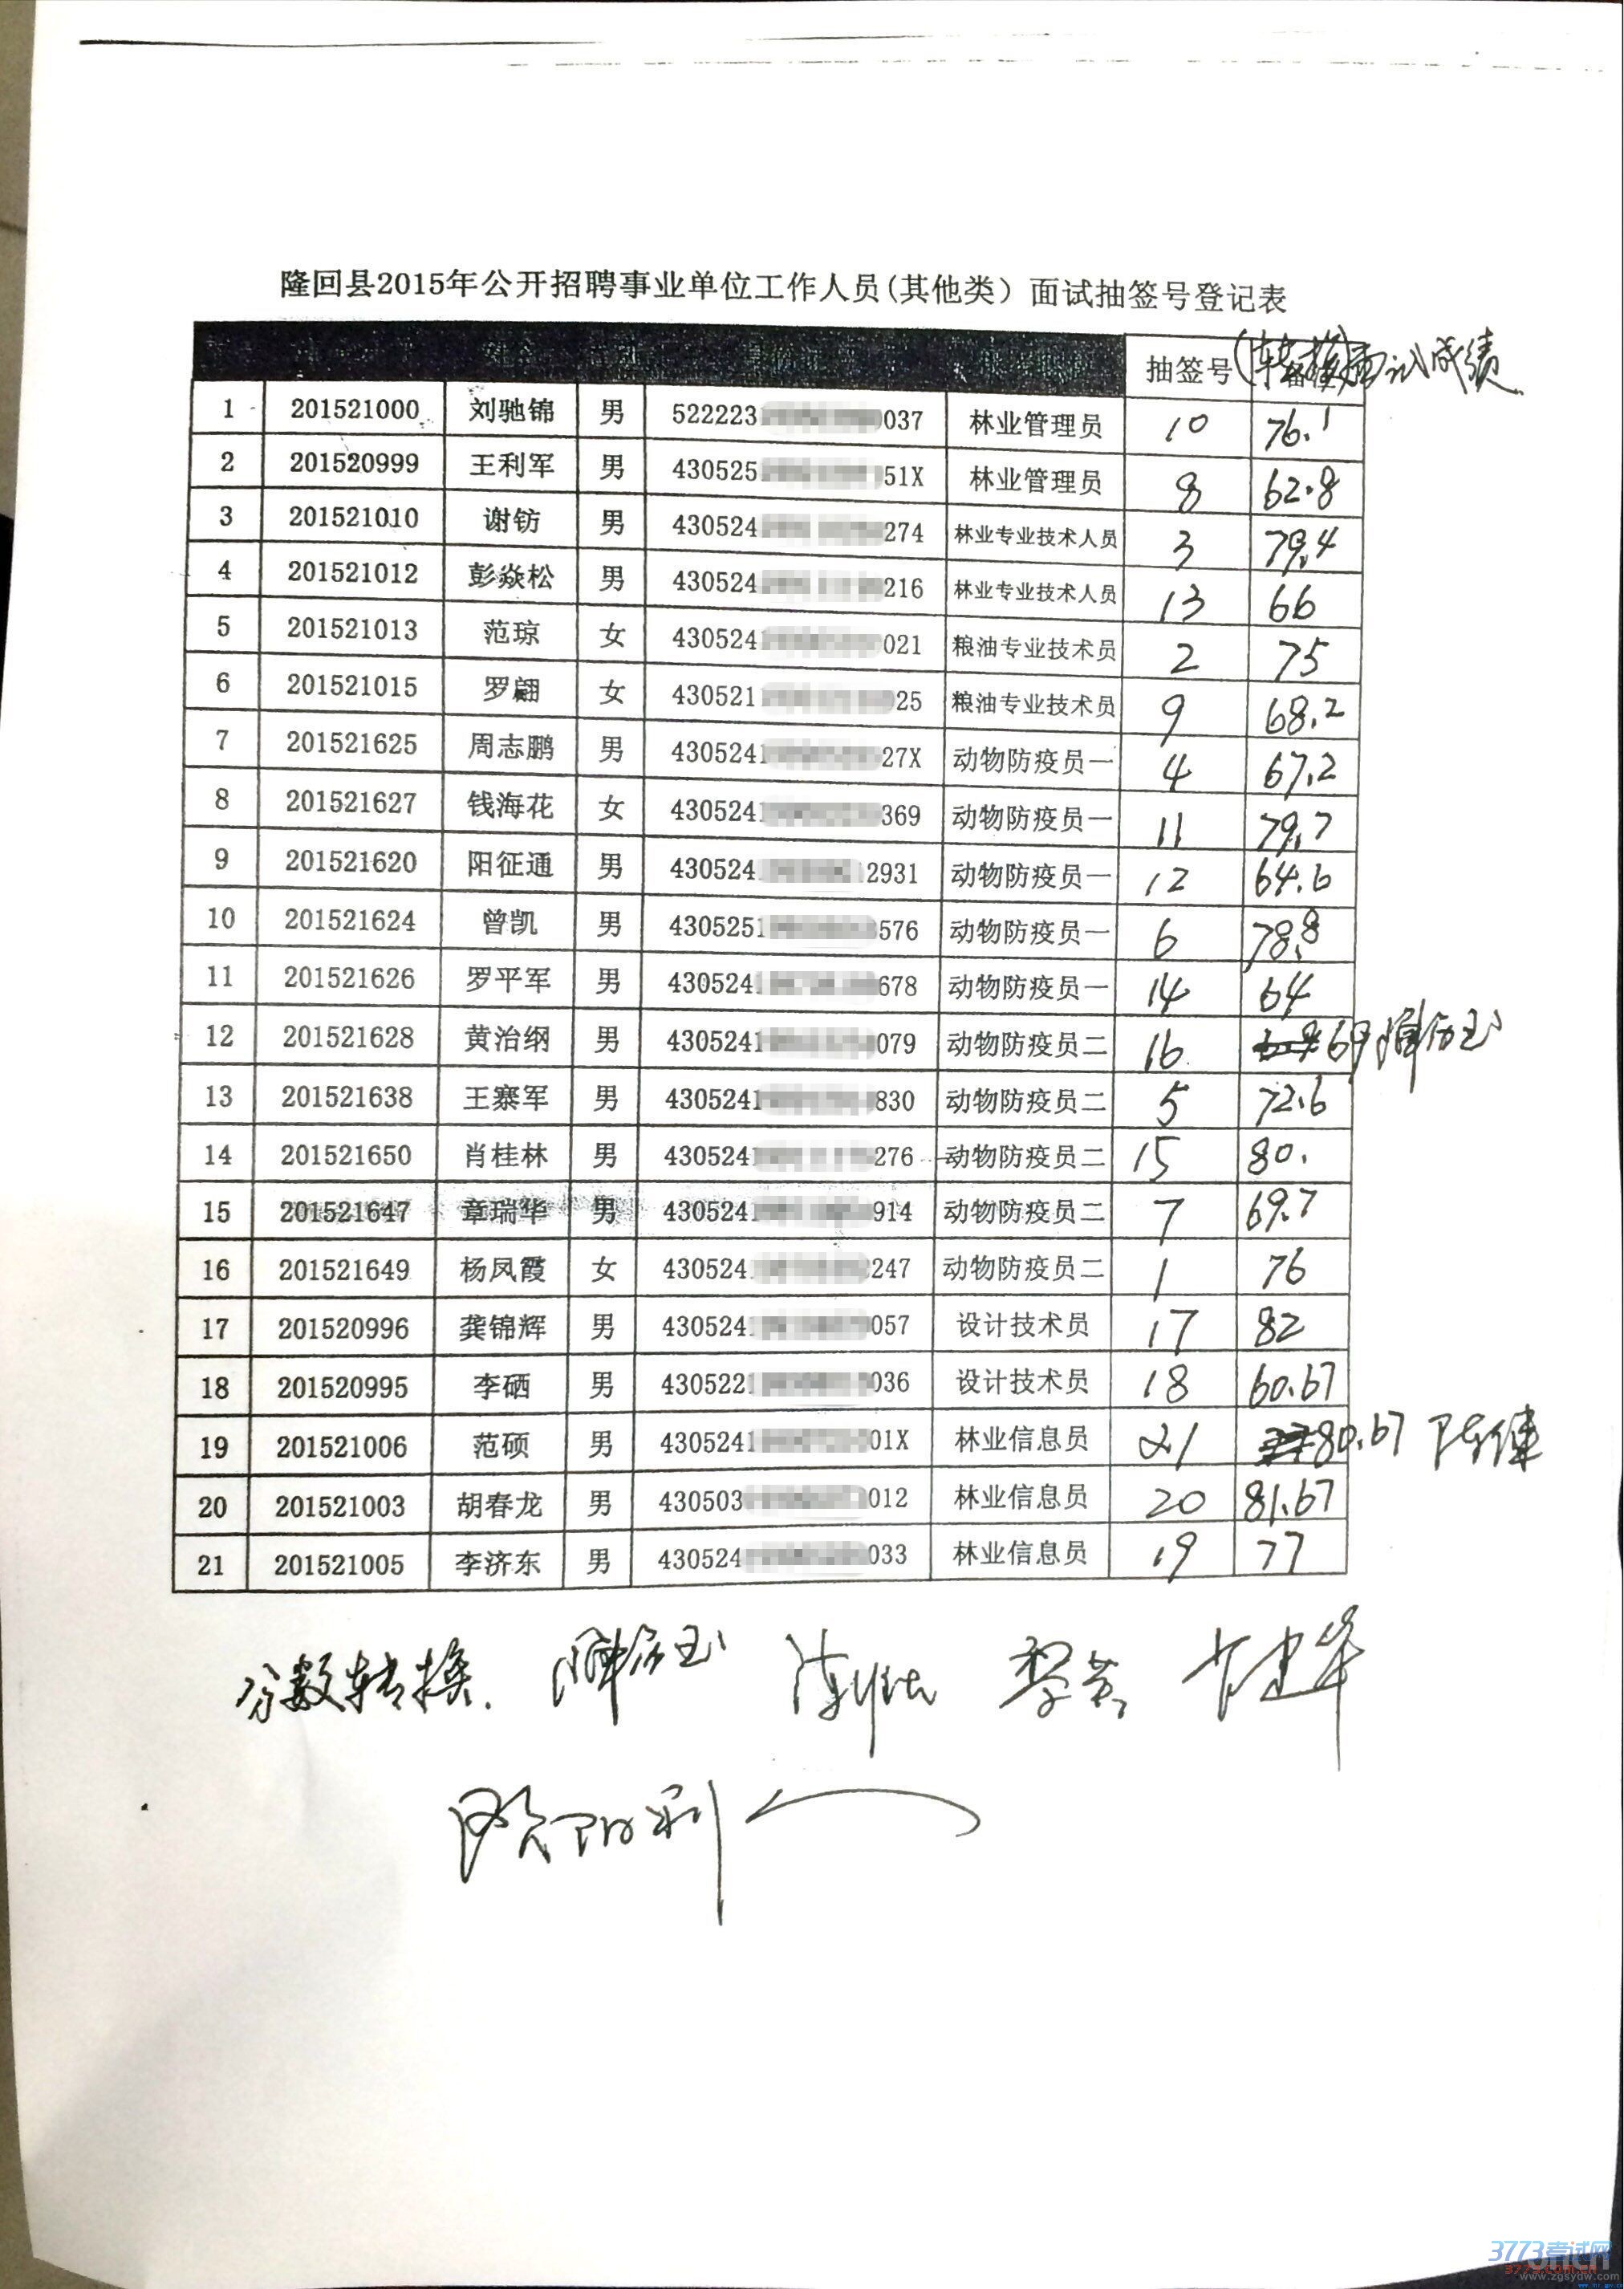 隆回县2015年公开招聘事业单位工作人员(其他类) 面试抽签号登记表
抽签号 (转换)面试成绩
1 201521000 刘驰锦 男 522223 037 林业管理员 10 76.1
2 201520999 王利军 男 430525 51X 林业管理员 8 62.8
3 201521010 谢钫 男 430524 274 林业专业技术人员 3 79.4
4 201521012 彭焱松 男 430524 216 林业专业技术人员 13 66
5 201521013 范琼 女 430524 021 粮油专业技术员 2 75
6 201521015 罗翩 女 430521 025 粮油专业技术员 9 68.2
7 201521625 周志鹏 男 4305241 27X 动物防疫员一 4 67.2
8 201521627 钱海花 女 430524 369 动物防疫员一 11 79.7
9 201521620 阳征通 男 430524 12931 动物防疫员一 12 64.6
10 201521624 曾凯 男 4305251 576 动物防疫员一 6 78.8
11 201521626 罗平军 男 4305241 678 动物防疫员一 14 64
12 201521628 黄治纲 男 4305241 079 动物防疫员二 16 69
13 201521638 王寨军 男 4305241 830 动物防疫员二 5 72.6
14 201521650 肖桂林 男 4305241 276 动物防疫员二 15 80.
15 201521647 章瑞华 男 4305241 914 动物防疫员二 7 69.7
16 201521649 杨凤霞 女 430524 247 动物防疫员二 1 76
17 201520996 龚锦辉 男 430524 057 设计技术员 17 82
18 201520995 李硒 男 4305221 036 设计技术员 18 60.67
19 201521006 范硕 男 4305241 01X 林业信息员 21 80.67
20 201521003 胡春龙 男 430503 012 林业信息员 20 81.67
21 201521005 李济东 男 430524 033 林业信息员 19 77
分数转换.
3773考试网
www.zgsydw.com